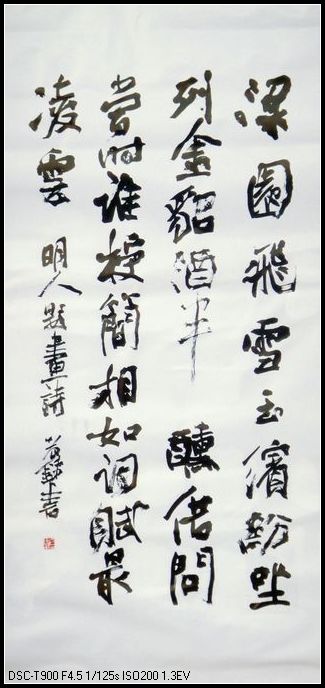 梁園飛雪玉繽紛坐
列金貂酒半醺借問
當時誰授簡相如詞賦最
凌雲 明人題畫詩 書
DSC-T900 F4.5 1/125s ISO200 1.3EV